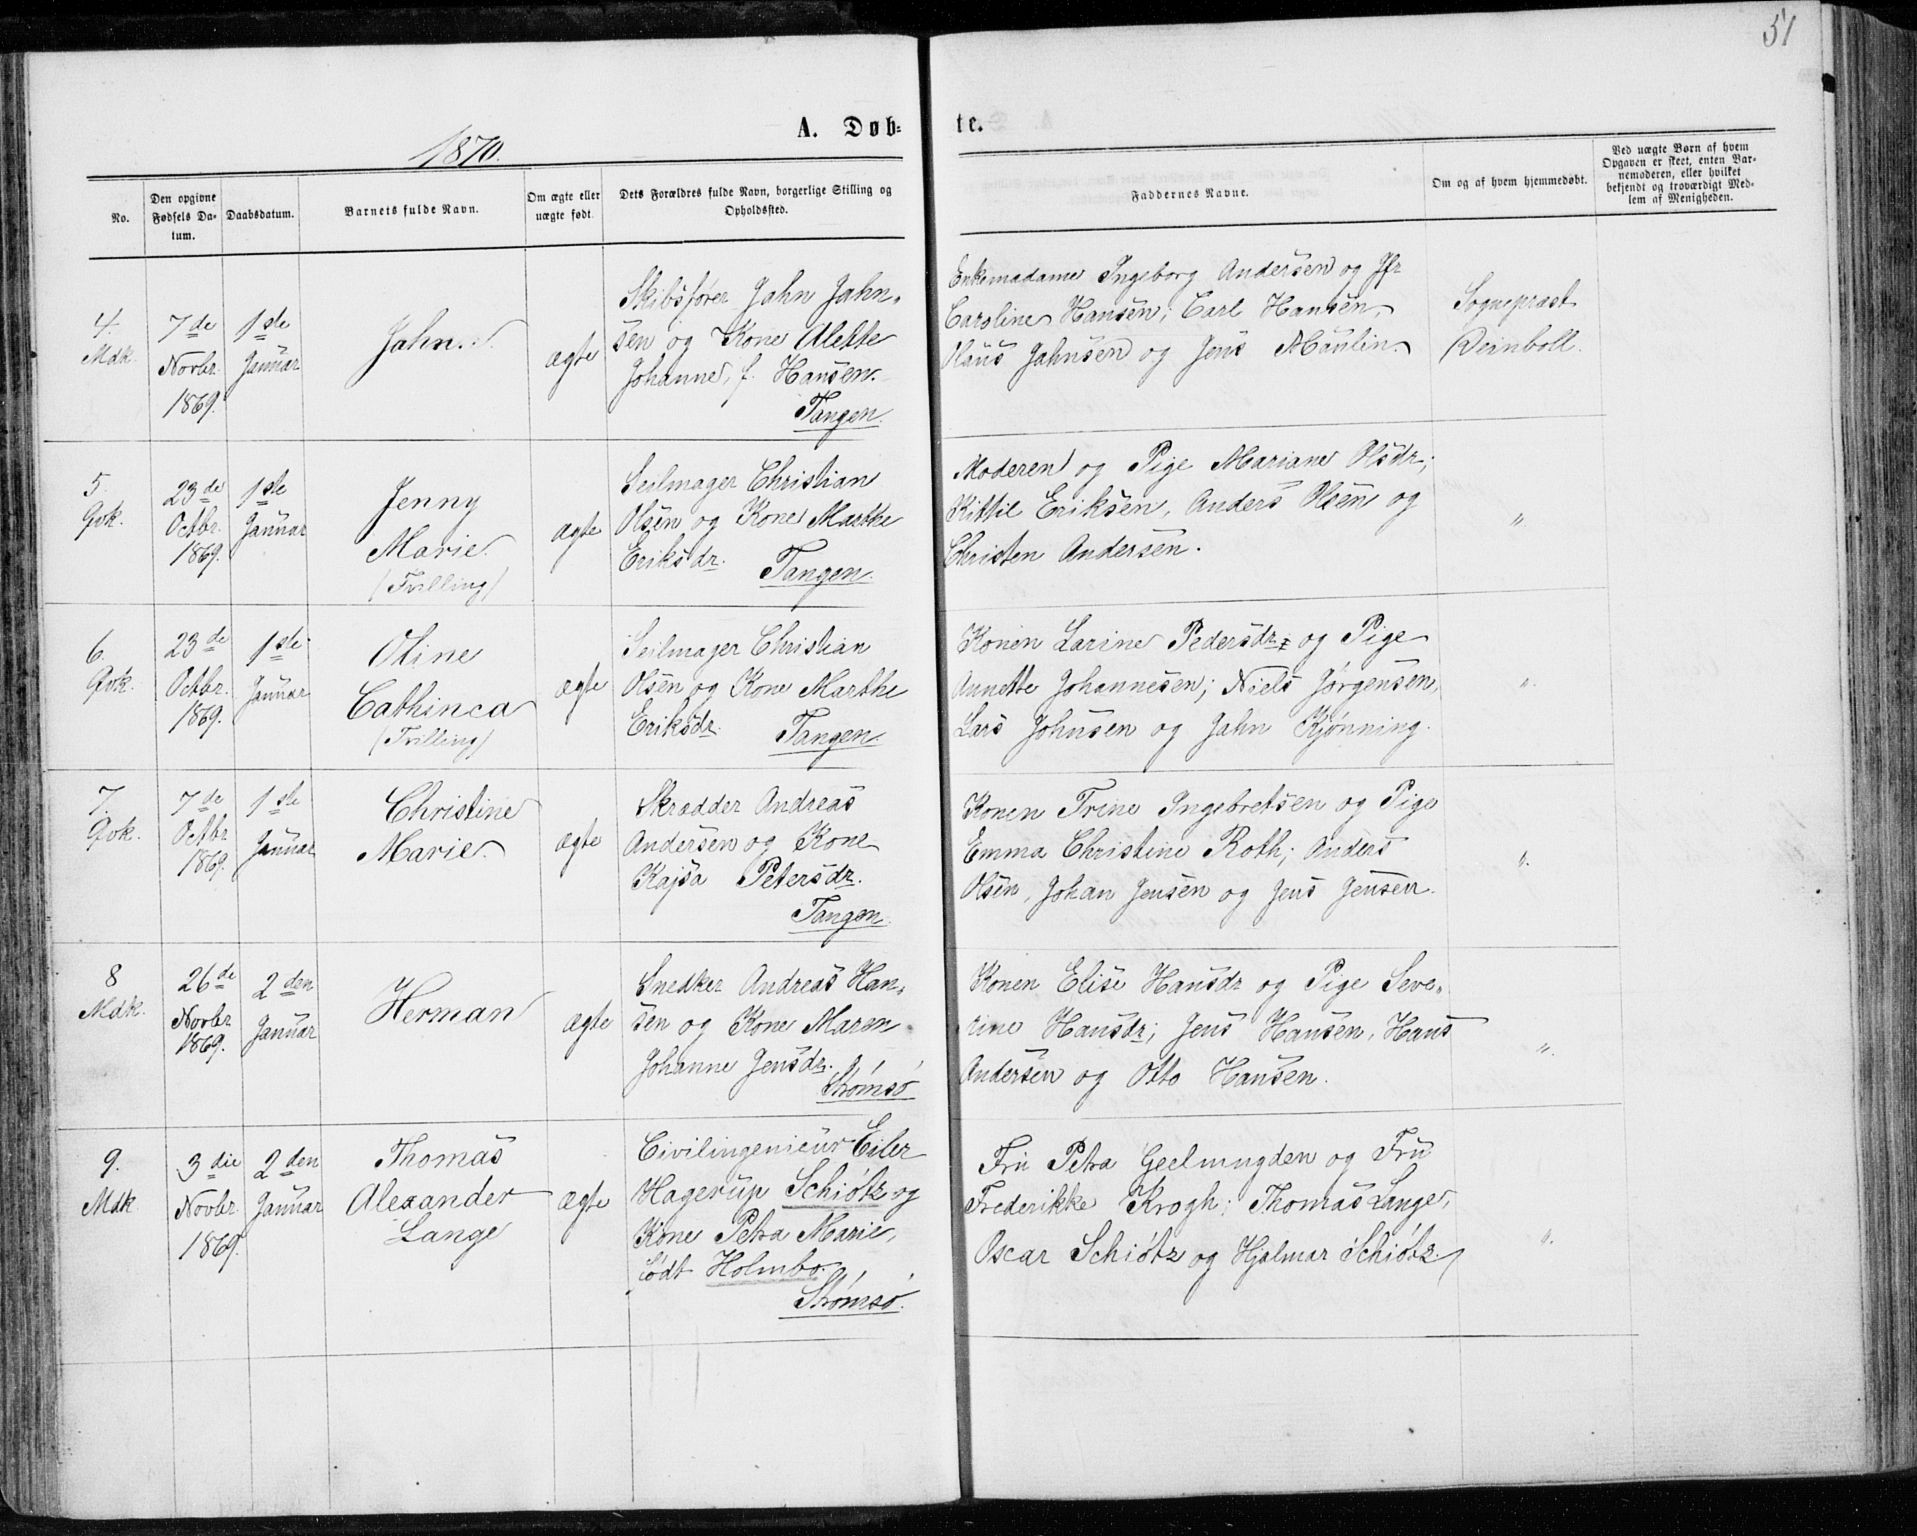 51
1870.
A. Døb-
te.
No.
Den opgivne
Fødsels Da-
tum.
Daabsdatum.
Barnets fulde Navn.
Om ægte eller
uægte født.
Dets Forældres fulde Navn, borgerlige Stilling og
Opholdssted.
Faddernes Navne.
Om og af hvem hjemmedøbt.
Ved uægte Børn af hvem
Opgaven er skeet, enten Bar-
nemoderen, eller hvilket
bekjendt og troværdigt Med-
lem af Menigheden.
4.
Mdk.
7de
Novbr.
1869.
1ste
Januar
Jahn.
ægte
Skibsfører Jahn Jahn-
sen og Kone Alette
Johanne, f. Hansen.
Tangen.
Enkemadame Ingeborg Andersen og Jfr
Caroline Hansen; Carl Hansen,
Olaus Jahnsen og Jens Maulin.
Sognepræst
Deinboll.
5.
Qvk.
23de
Octbr.
1869.
1ste
Januar
Jenny
Marie.
(Tvilling)
ægte
Seilmager Christian
Olsen og Kone Marthe
Eriksdr.
Tangen.
Moderen og Pige Mariane Olsdr;
Kittil Eriksen, Anders Olsen og
Christen Andersen.
"
6.
Qvk.
23de
Octbr.
1869.
1ste
Januar
Oline
Cathinca
(Tvilling)
ægte
Seilmager Christian
Olsen og Kone Marthe
Eriksdr.
Tangen
Konen Larine Pedersdr. og Pige
Annette Johannesen; Niels Jørgensen,
Lars Johnsen og Jahn Kjønning.
".
7.
Qvk.
7de
Octbr.
1869.
1ste
Januar
Christine
Marie.
ægte
Skrædder Andreas
Andersen og Kone
Kajsa Petersdr.
Tangen
Konen Trine Ingebretsen og Pige
Emma Christine Roth; Anders
Olsen, Johan Jensen og Jens Jensen.
".
8
Mdk.
26de
Novbr
1869.
2den
Januar
Herman
ægte
Snedker Andreas Han-
sen og Kone Maren
Johanne Jensdr.
Strømsø
Konen Elise Hansdr og Pige Seve-
rine Hansdr; Jens Hansen, Hans
Andersen og Otto Hansen.
".
9.
Mdk.
3die
Novbr.
1869.
2den
Januar
Thomas
Alexander
Lange
ægte
Civilingenieur Eiler
Hagerup Schiøtz og
Kone Petra Marie,
født Holmbo.
Strømsø.
Fru Petra Geelmuyden og Fru
Frederikke Krogh; Thomas Lange,
Oscar Schiøtz og Hjalmar Schiøtz.
".